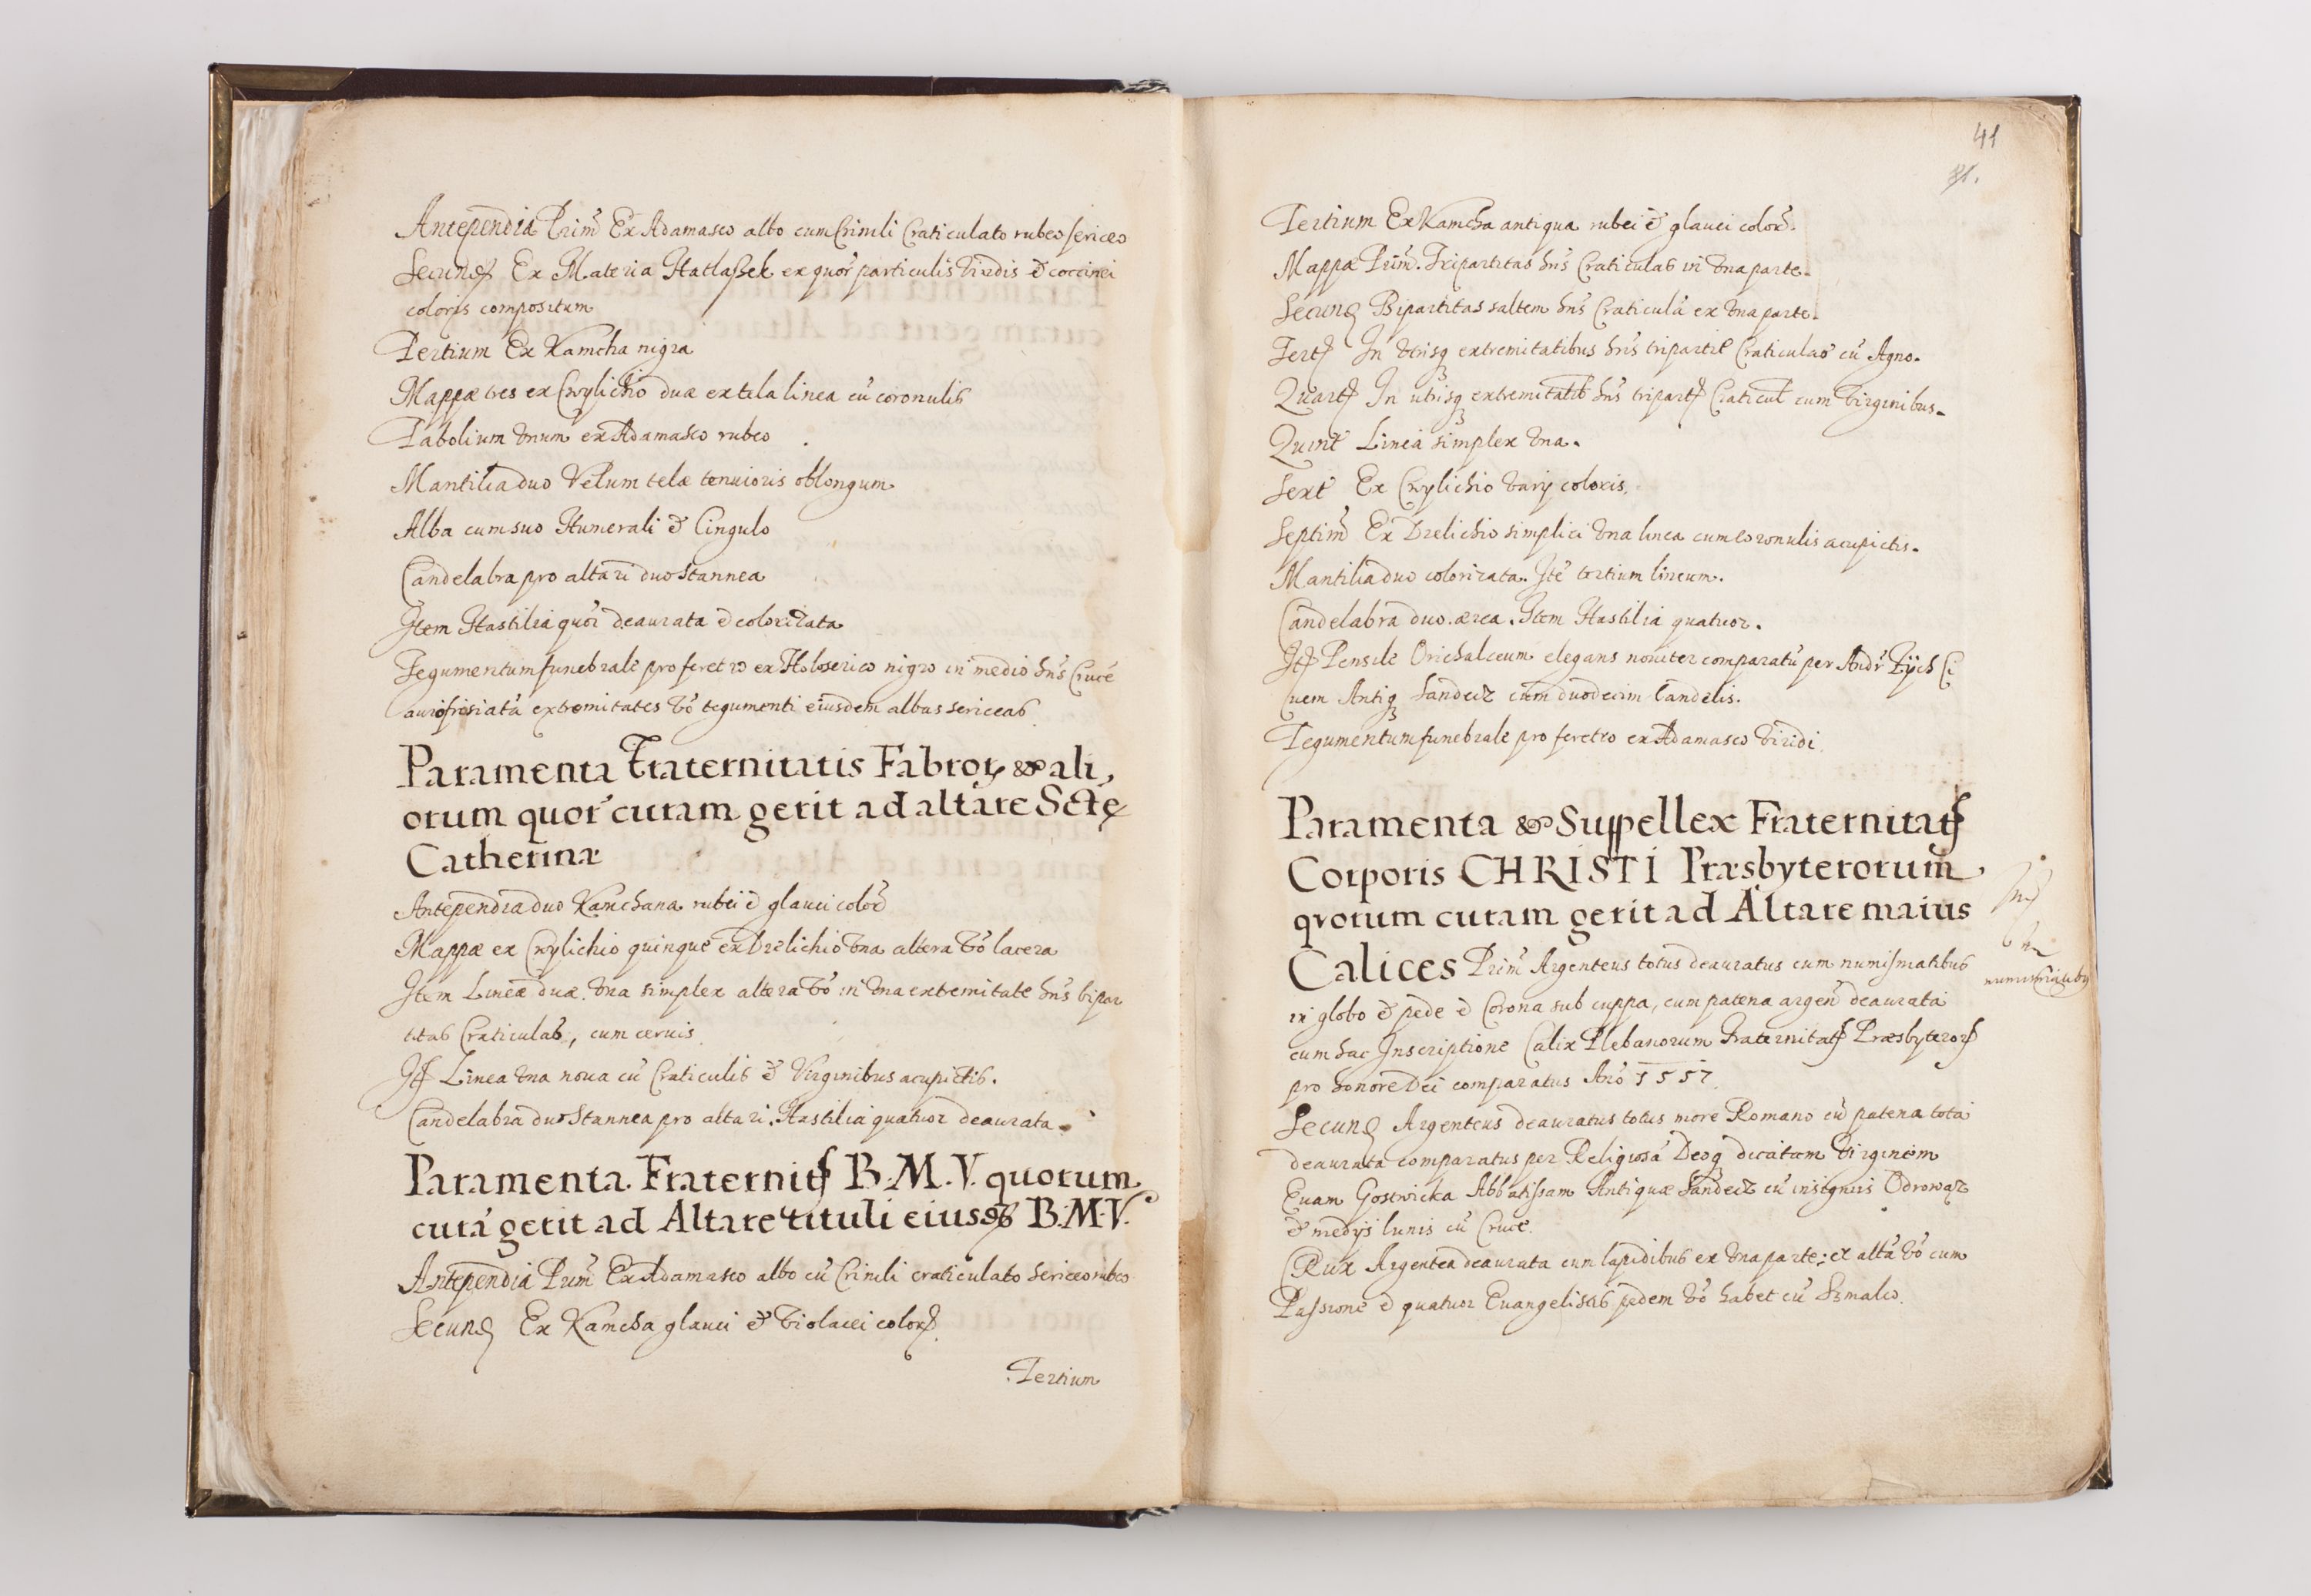 Antependia Prim̄ Ex Adamasco albo cum Crinili Craticulato rubeo sericeo
Secund Ex Materia Hatlaßek ex quor̄ particulis viridis & coccinei
coloris compositum
Tertium Ex Kamcha nigra
Mappæ tres ex Cwylichio duæ ex tela linea cū coronulis
Tabolium vnum ex Adamasco rubeo
Mantilia duo Velum telæ tenuioris oblongum
Alba cum suo Humerali & Cingulo
Candelabra pro altari duo stannea
Item Hastilia quor̄ deaurata & colorizata
Tegumentum funebrale pro feretro ex Holoserico nigro in medio hn̄s Crucē
aurifrisiatā extremitates vō tegumenti eiusdem albas sericeas
Paramenta Fraternitatis Fabror & ali,
orum quor̄ curam gerit ad altare Sctę
Catherinæ
Antependia duo Kamchana rubei & glauci color̄
Mappæ ex Cwylichio quinque ex Drelichio vna altera vō lacera
Item Lineæ duæ vna simplex altera vō in vna extremitate hn̄s bipar
titas Craticulas, cum ceruis
It Linea vna noua cū Craticulis & Virginibus acupictis.
Candelabra duo Stannea pro altari. Hastilia quatuor deaurata.
Paramenta Fraternit B.M.V. quorum
curā gerit ad Altare tituli eiusd B.M.V.
Antependia Prim̄ Ex Adamasco albo cū Crinili craticulato sericeo rubeo
Secund Ex Kamcha glauci & violacei color
Tertium
41
Tertium Ex Kamcha antiqua rubei & glauci color̄.
Mappæ Prim̄. Tripartitas hn̄s Craticulas in vna parte.
Secund Bipartitas saltem hn̄s Craticulā ex vna parte.
Tert In vtrisq extremitatibus hn̄s tripartit Craticulas cū Agno.
Quart In utrisq extremitatib hn̄s tripart Craticul cum Virginibus.
Quint Linea simplex vna.
Sext Ex Cwylichio varij coloris.
Septim̄ Ex Drelichio simplici vna linea cum coronulis acupictis.
Mantilia duo colorizata. Itē tertium lineum.
Candelabra duo ærea. Item Hastilia quatuor.
It Pensile Orichalceum elegans nouiter comparatū per Andr̄ Zÿch Ci
uem Antiq Sandecz cum duodecim Candelis.
Tegumentum funebrale pro feretro ex Adamasco viridi
Paramenta & Suppellex Fraternitat
Corporis CHRISTI Præsbyterorum
qvorum curam gerit ad Altare maius
Calices Prim̄ Argenteus totus deauratus cum numismatibus
in globo & pede & Corona sub cuppa, cum patena argen̄ deaurata
cum hac Inscriptione Calix Plebanorum Fraternitat Præsbyteror
pro honore Dei comparatus Anō 1557.
Secund Argenteus deauratus totus more Romano cū patena tota
deaurata comparatus per Religiosā Deoq dicatam Virginem
Euam Gostwicka Abbatissam Antiquæ Sandecz cū insignijs Odrowaz
& medijs lunis cū Cruce.
Crux Argentea deaurata cum lapidibus ex vna parte: ex altā vō cum
Passione & quatuor Euangelistis pedem vō habet cū Szmalco.
numismatibus